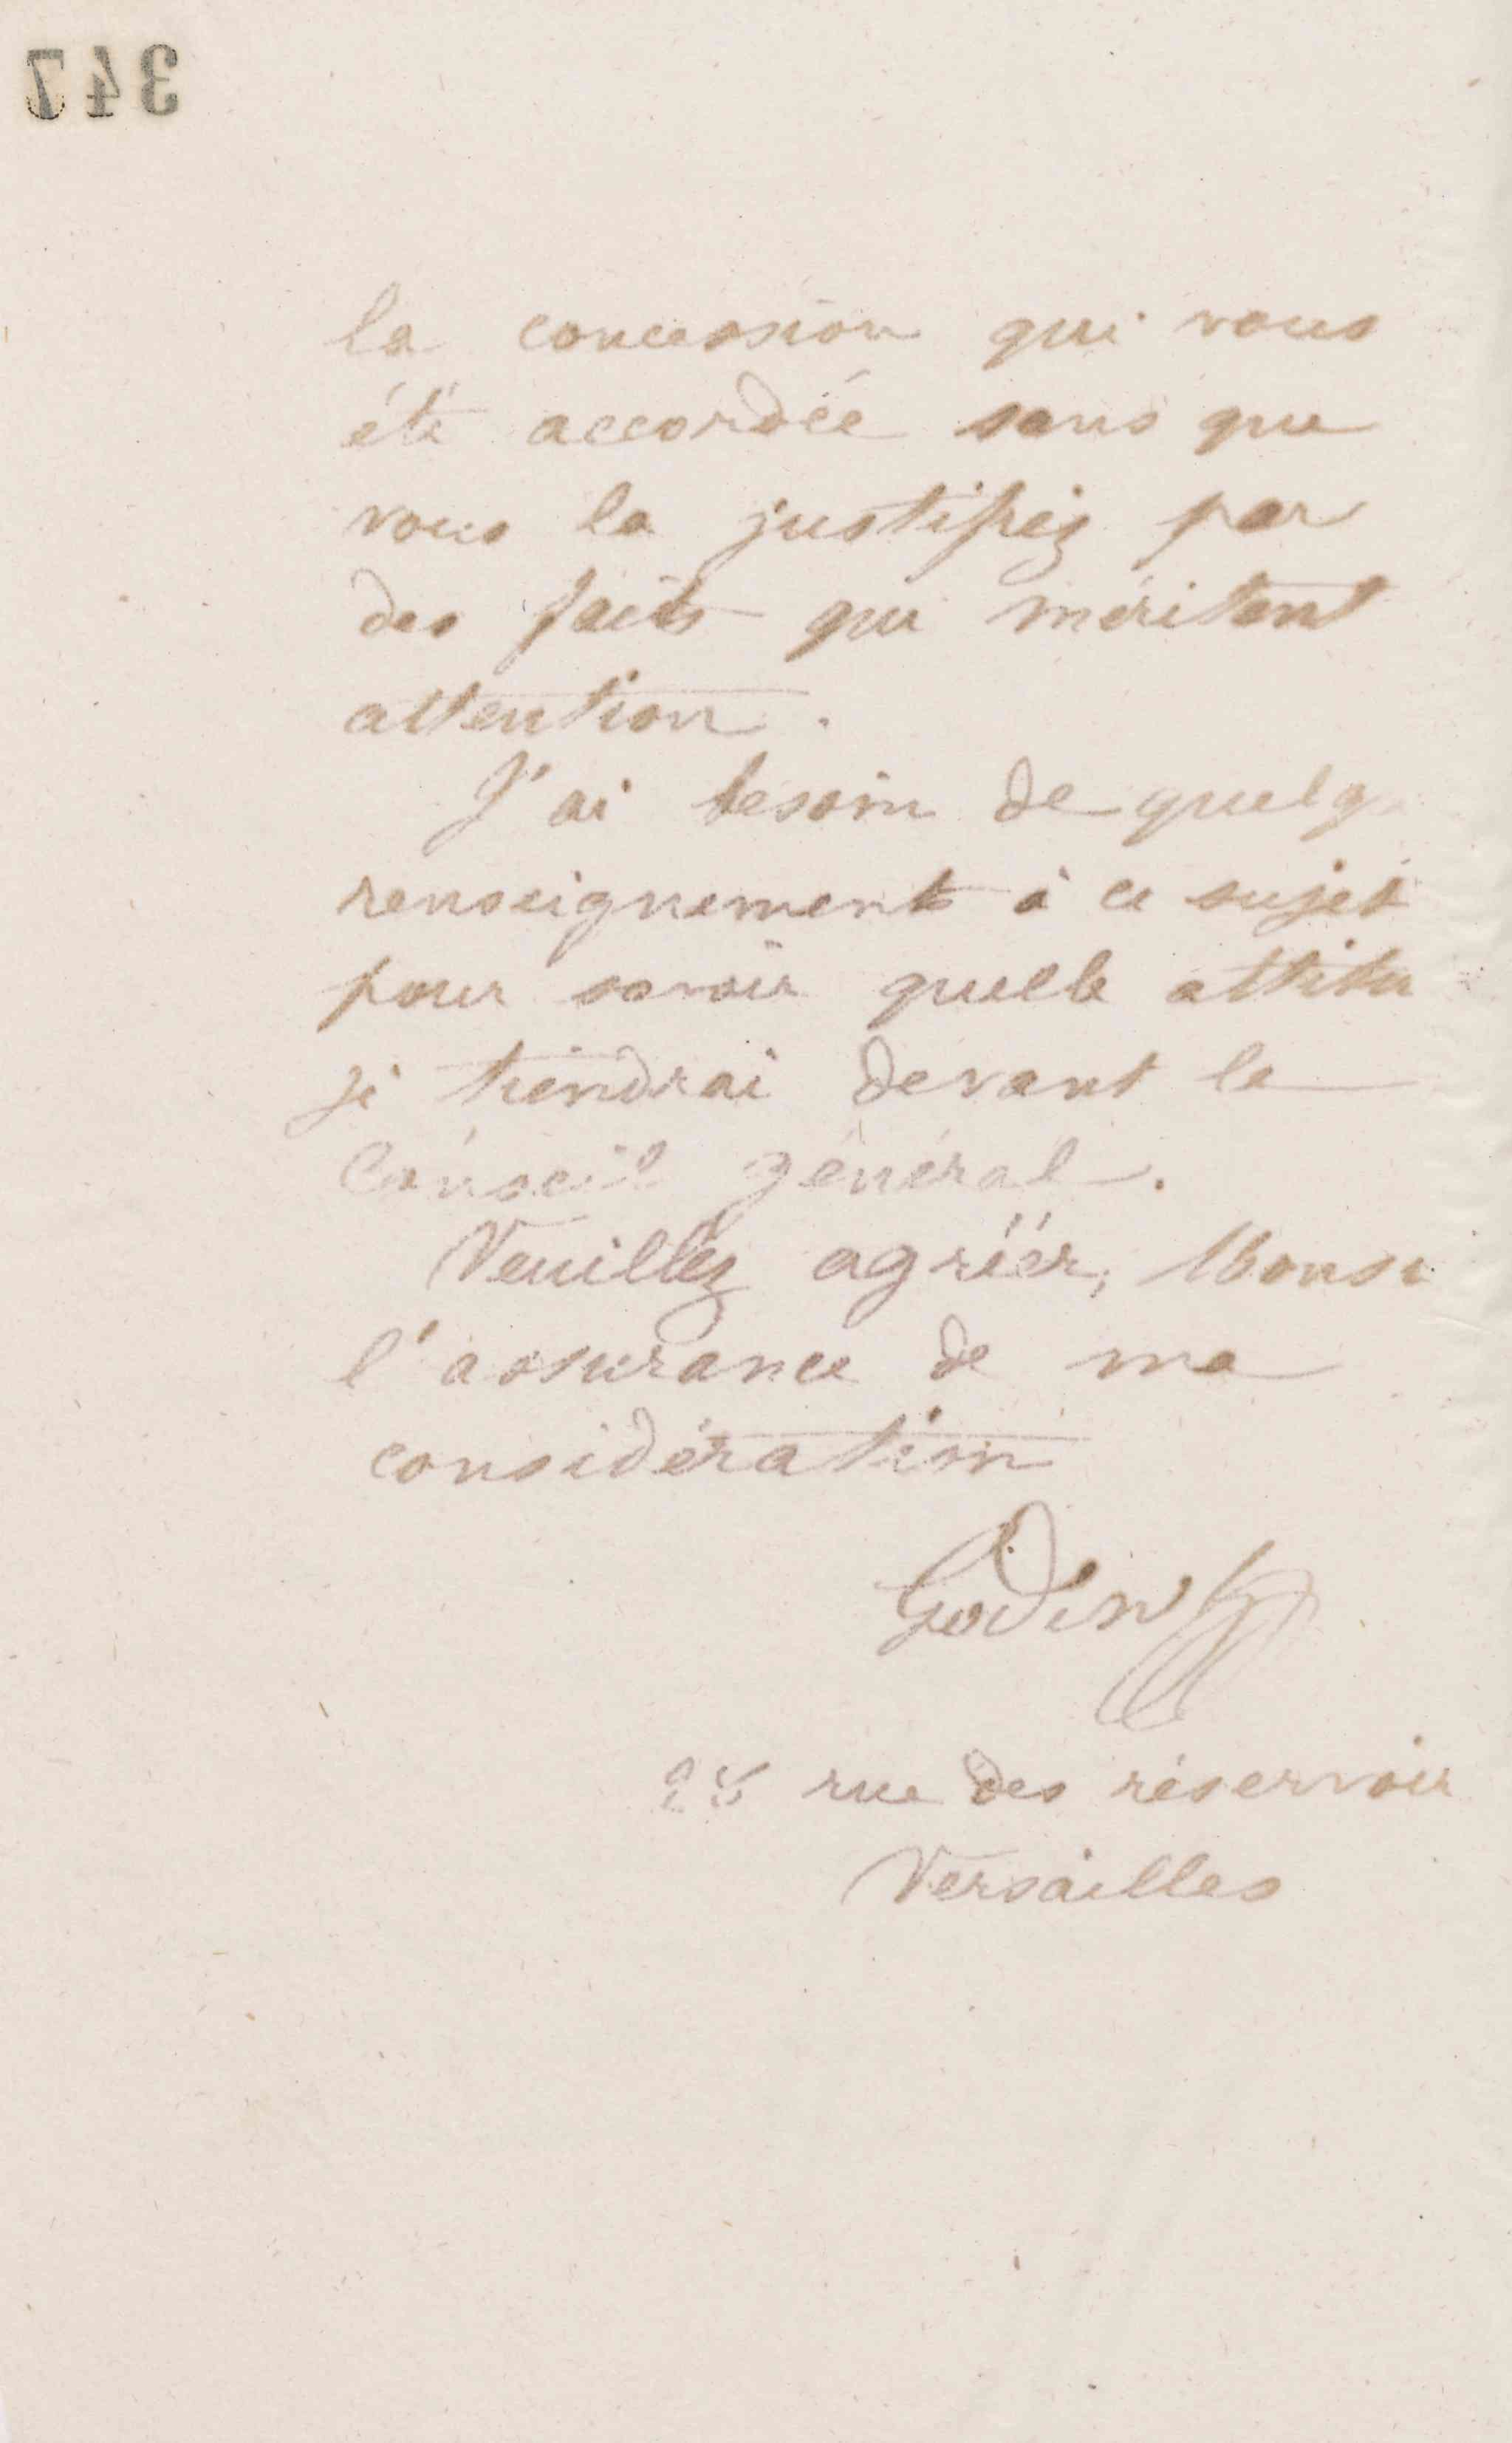 347
la concession qui vous
été accordée sans que
vous la justifiez par
des faits qui méritent
attention.
J'ai besoin de quelq
renseignements à ce sujet
pour savoir quelle attitu
je tiendrai devant le
Conseil général.
Veuillez agréer, Monsi
l'assurance de ma
considération
Godin
rue des réservoir
Versailles